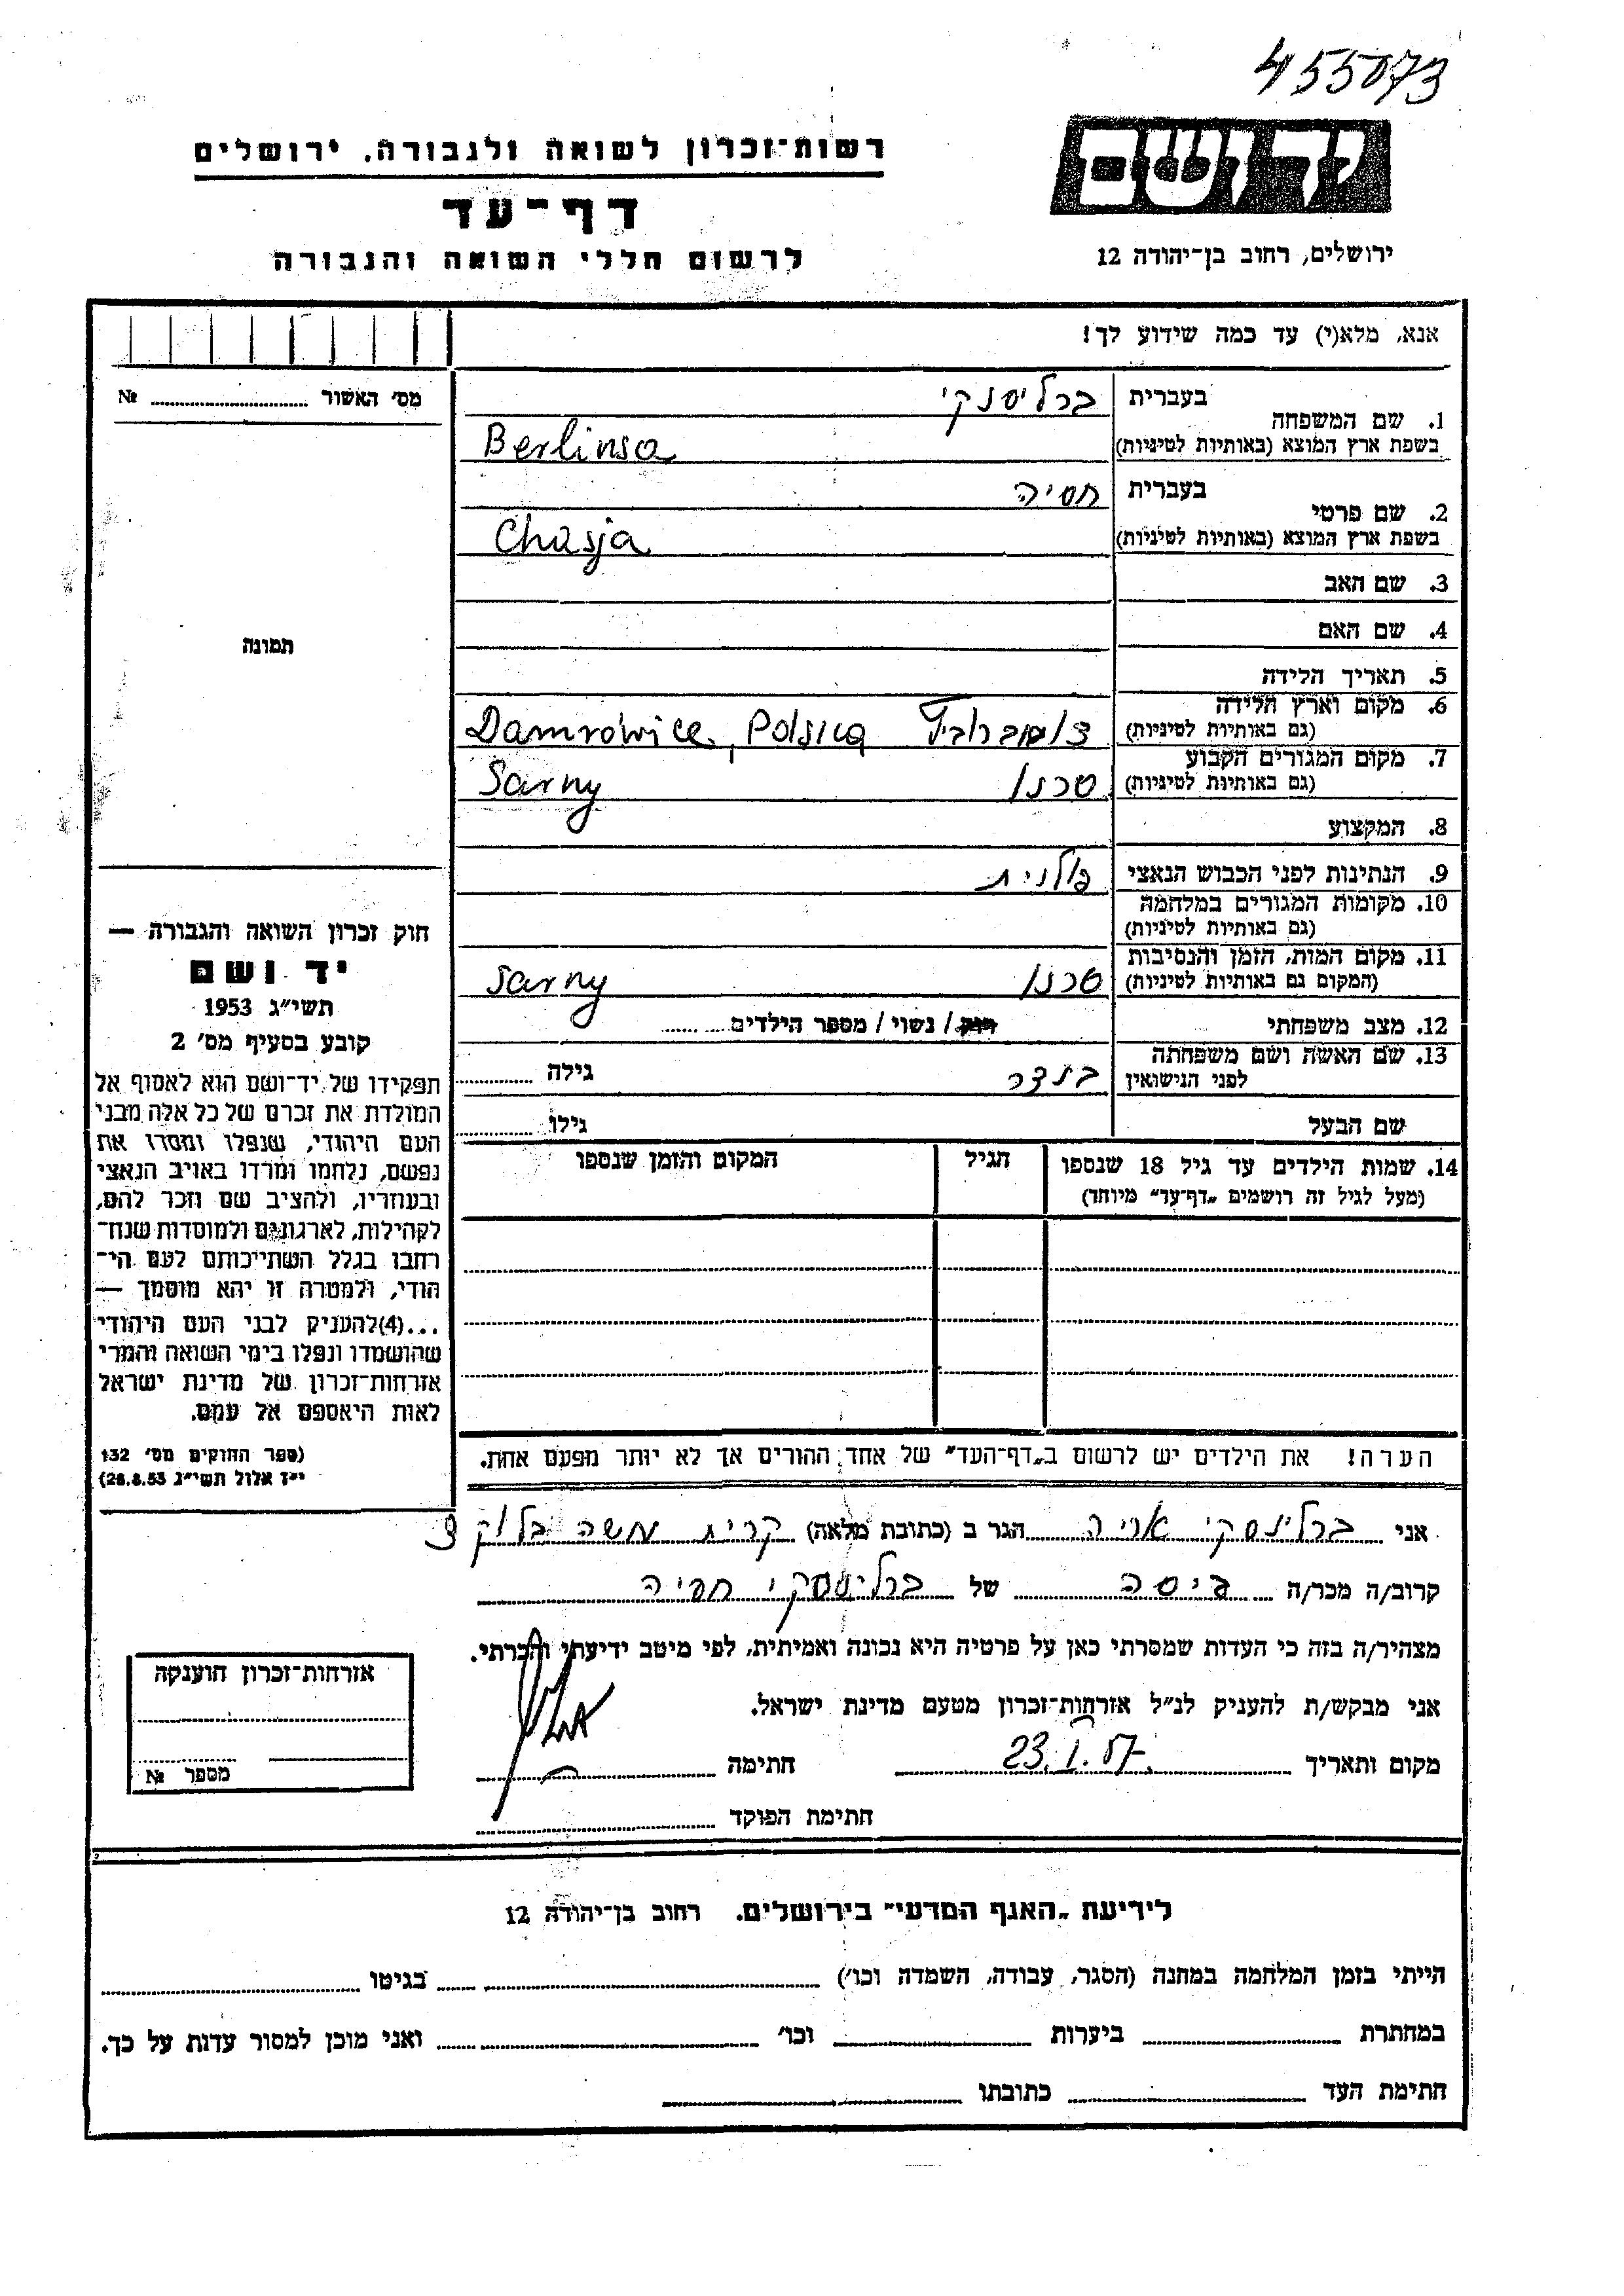 455073
יד ושם
רשות־זכרון לשואה ולגבורה, ירושלים
דף־עד
לרשום חללי השואה והגבורה
ירושלים, רחוב בן־יהודה 12
אנא, מלא(י) עד כמה שידוע לך!
מס' האשור № 
תמונה
1. שם המשפחה בעברית ברליסנקי
בשפת ארץ המוצא (באותיות לטיניות) Berlinsa
2. שם פרטי בעברית חסיה
בשפת ארץ המוצא (באותיות לטיניות) Chasja
3. שם האב
4. שם האם
5. תאריך הלידה
6. מקום וארץ הלידה
(גם באותיות לטיניות) Polska
7. מקום המגורים הקבוע
(גם באותיות לטיניות) סרני Sarny
8. המקצוע
9. הנתינות לפני הכבוש הנאצי פולנית
10. מקומות המגורים במלחמה
(גם באותיות לטיניות)
11. מקום המות, הזמן והנסיבות
(המקום גם באותיות לטיניות) סרני Sarny
12. מצב משפחתי רווק / נשוי / מספר הילדים
13. שם האשה ושם משפחתה
לפני הנישואין גילה
שם הבעל גילו
14. שמות הילדים עד גיל 18 שנספו הגיל המקום והזמן שנספו
(מעל לגיל זה רושמים „דף־עד" מיוחד)
הערה! את הילדים יש לרשום ב„דף־העד" של אחד ההורים אך לא יותר מפעם אחת.
חוק זכרון השואה והגבורה —
יד ושם
תשי"ג 1953
קובע בסעיף מס' 2
תפקידו של יד־ושם הוא לאסוף אל
המולדת את זכרם של כל אלה מבני
העם היהודי, שנפלו ומסרו את
נפשם, נלחמו ומרדו באויב הנאצי
ובעוזריו, ולהציב שם וזכר להם,
לקהילות, לארגונים ולמוסדות שנח־
רבו בגלל השתייכותם לעם הי־
הודי, ולמטרה זו יהא מוסמך —
...(4)להעניק לבני העם היהודי
שהושמדו ונפלו בימי השואה והמרי
אזרחות־זכרון של מדינת ישראל
לאות היאספם אל עמם.
(ספר החוקים מס' 132
י"ז אלול תשי"ג 28.8.53)
אני ברלינסקי אריה הגר ב (כתובת מלאה) קרית משה בלוק 3
קרוב/ה מכר/ה גיסה של ברלינסקי חסיה
מצהיר/ה בזה כי העדות שמסרתי כאן על פרטיה היא נכונה ואמיתית, לפי מיטב ידיעתי והכרתי.
אני מבקש/ת להעניק לנ"ל אזרחות־זכרון מטעם מדינת ישראל.
מקום ותאריך 23.I.57 חתימה
חתימת הפוקד
אזרחות־זכרון הוענקה
מספר №
לידיעת „האגף המדעי" בירושלים, רחוב בן־יהודה 12
הייתי בזמן המלחמה במחנה (הסגר, עבודה, השמדה וכו') בגיטו
במחתרת ביערות וכו' ואני מוכן למסור עדות על כך.
חתימת העד כתובתו